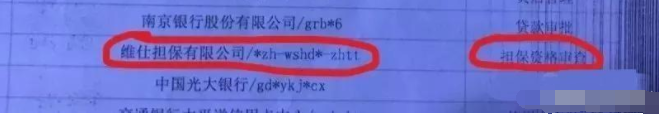 南京银行股份有限公司/grb*6 贷款审批
维仕担保有限公司/*zh-wshd*-zhtt 担保资格审查
中国光大银行/gd*ykj*cx